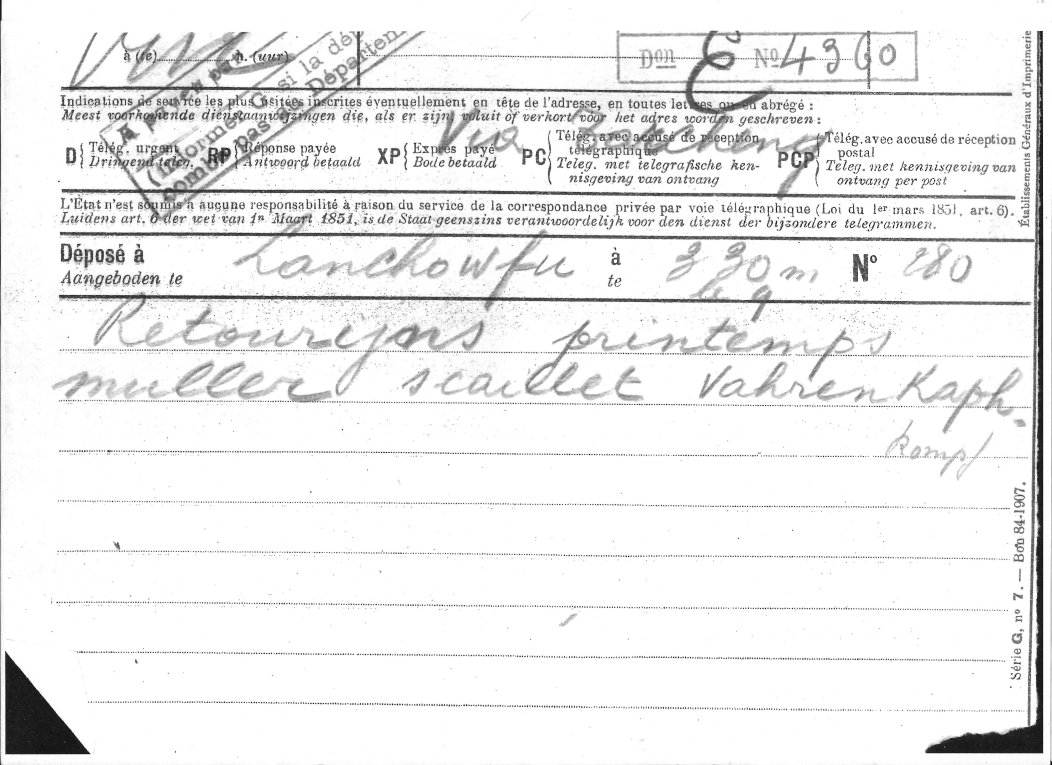 à (te) h. (uur)
Don E No 4360
Indications de service les plus usitées inscrites éventuellement en tête de l'adresse, en toutes lettres ou en abrégé :
Meest voorkomende dienstaanwijzingen die, als er zijn, voluit of verkort vóór het adres worden geschreven :
Via
D Télég. urgent
Dringend teleg.
RP Réponse payée
Antwoord betaald
XP Exprès payé
Bode betaald
PC Télég. avec accusé de réception
télégraphique
Teleg. met telegrafische ken-
nisgeving van ontvang
PCP Télég. avec accusé de réception
postal
Teleg. met kennisgeving van
ontvang per post
L'État n'est soumis à aucune responsabilité à raison du service de la correspondance privée par voie télégraphique (Loi du 1er mars 1851, art. 6).
Luidens art. 6 der wet van 1n Maart 1851, is de Staat geenszins verantwoordelijk voor den dienst der bijzondere telegrammen.
Déposé à Lanchowfu à 3 30 m No 280
Aangeboden te te 6 9
Retourijns printemps
muller scaillet Vahrenkaph.
kompf
Établissements Généraux d'Imprimerie
Série G, no 7. — Bon 84-1907.